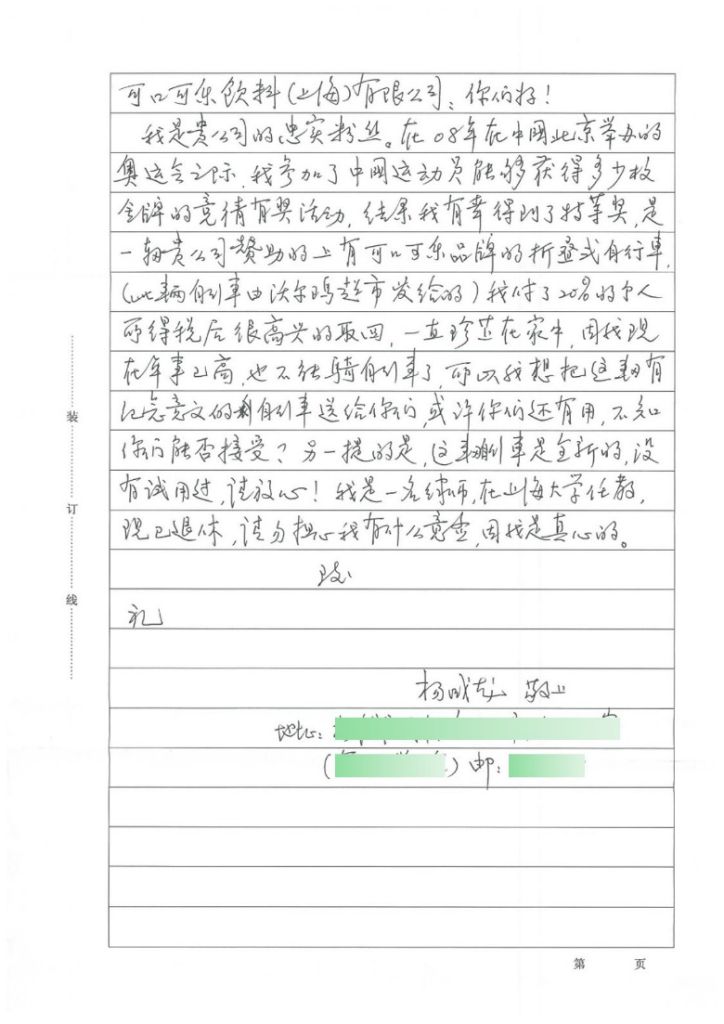 可口可乐饮料(上海)有限公司：你们好！
我是贵公司的忠实粉丝。在08年在中国北京举办的
奥运会之际，我参加了中国运动员能够获得多少枚
金牌的竞猜有奖活动，结果我有幸得到了特等奖，是
一辆贵公司赞助的上有可口可乐品牌的折叠式自行车，
(此辆自行车由沃尔玛超市发给的)我付了20%的个人
所得税后很高兴的取回，一直珍芷在家中，因我现
在年事已高，也不能骑自行车了，所以我想把这辆有
纪念意义的自行车送给你们，或许你们还有用，不知
你们能否接受？另一提的是，这辆车是全新的，没
有试用过，请放心！我是一名律师，在上海大学任教，
现已退休，请勿担心我有什么意图，因我是真心的。
致
礼
杨成龙 敬上
地址：
( ) 邮：
装
订
线
第 页